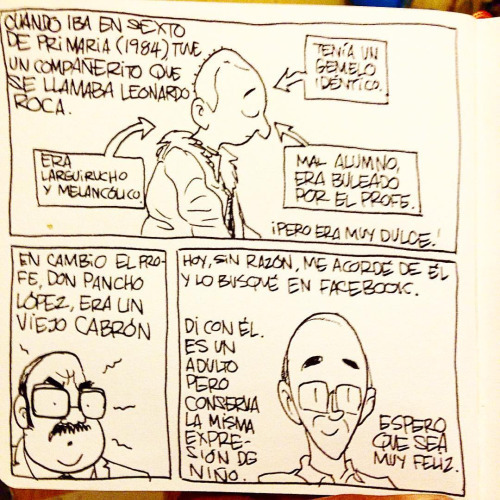 CUANDO IBA EN SEXTO
DE PRIMARIA (1984) TUVE
UN COMPAÑERITO QUE
SE LLAMABA LEONARDO
ROCA.
TENÍA UN
GEMELO
IDÉNTICO.
ERA
LARGUIRUCHO
Y MELANCÓLICO.
MAL ALUMNO,
ERA BULEADO
POR EL PROFE.
¡PERO ERA MUY DULCE!
EN CAMBIO EL PRO-
FE, DON PANCHO
LÓPEZ, ERA UN
VIEJO CABRÓN
HOY, SIN RAZÓN, ME ACORDÉ DE ÉL
Y LO BUSQUÉ EN FACEBOOK.
DI CON ÉL.
ES UN
ADULTO
PERO
CONSERVA
LA MISMA
EXPRE-
SIÓN DE
NIÑO.
ESPERO
QUE SEA
MUY FELIZ.